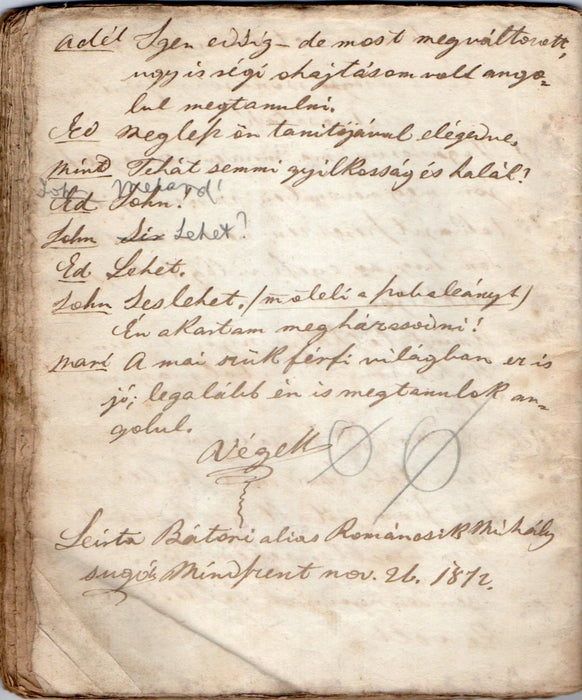 Adél Igen eddig – de most megváltozott,
ugy is régi ohajtásom volt ango-
lul megtanulni.
Ed Meglesz ön tanitójával elégedve.
Mind Tehát semmi gyilkosság és halál?
John Medard!
Ed John!
John Six Lehet?
Ed Lehet.
John Les lehet. /m öleli a szobaleányt/
Én akartam megházosodni!
Mari A mai szük férfi világban ez is
jó; legalább én is megtanulok an-
golul.
Vége
Leirta Bátori alias Románcsik Mihály
sugó Mindszent nov. 26. 1872.